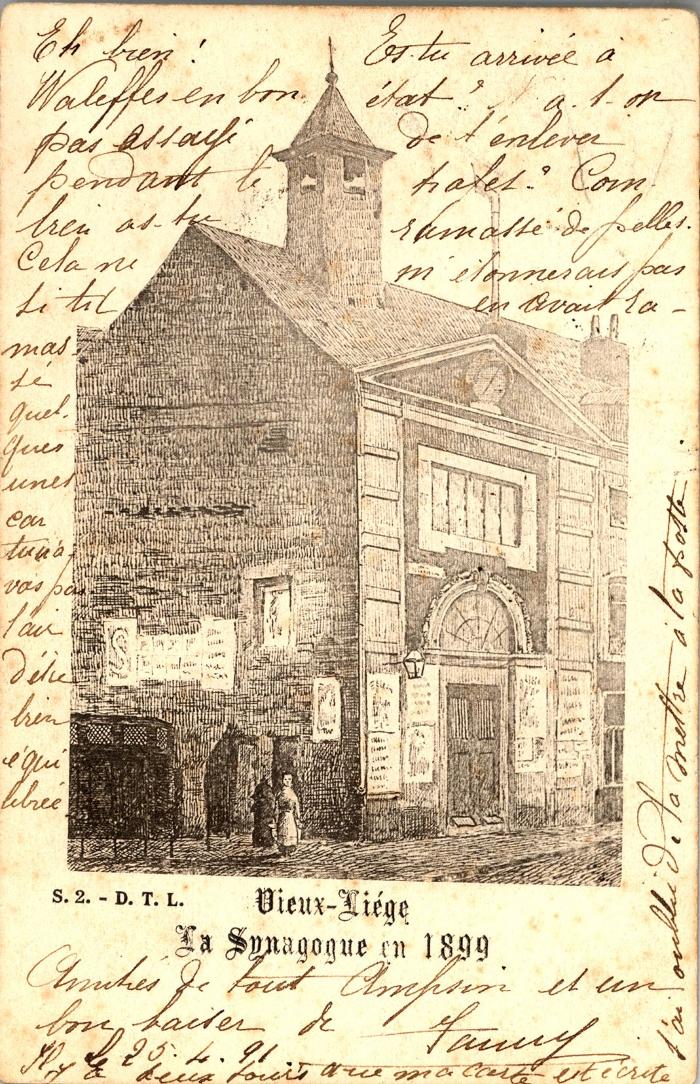 Eh bien! Es-tu arrivée à
Waleffes en bon état? a-t-on
pas essayé de t'enlever
pendant le trajet? Com
bien as-tu ramassé de pelles.
Cela ne m'étonnerais pas
si tu en avait ra-
mas-
sé
quel-
ques
unes
car
tu n'a-
vas pas
l'air
d'être
bien
équi
librée
S. 2. - D. T. L.
Vieux-Liége
La Synagogue en 1899
Amitiés de tout Ampsin et un
bon baiser de Fanny
Il y a deux jours que ma carte est écrite
j'ai oublié de la mettre à la poste